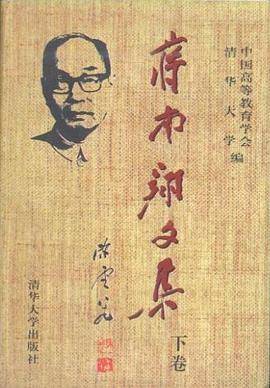 中国高等教育学会
清华大学编
蒋南翔文集
下卷
陈云
清华大学出版社